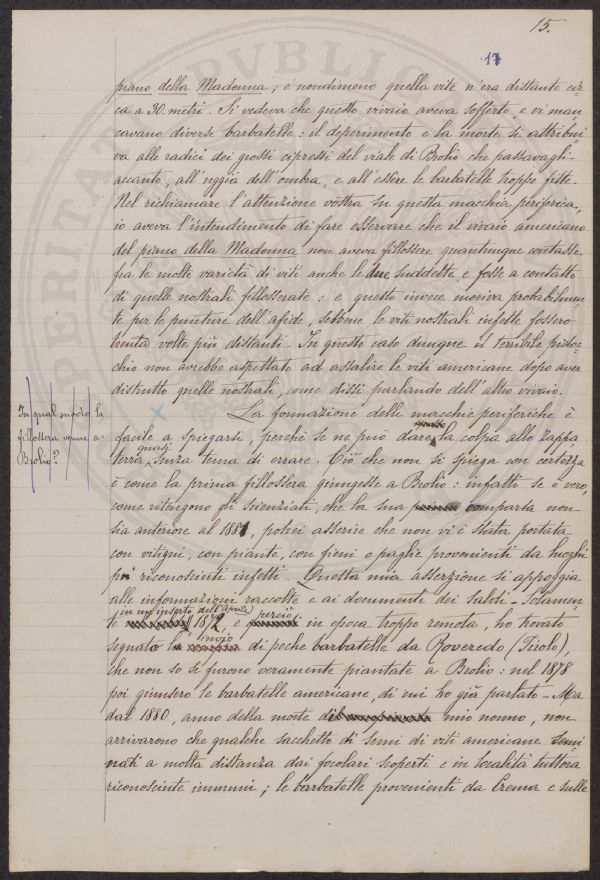 15.
17
piano della Madonna; e nondimeno quella vite n'era distante cir-
ca a 30 metri. Si vedeva che questo vivaio aveva sofferto e vi man-
cavano diverse barbatelle: il deperimento e la morte si attribui-
va alle radici dei grossi cipressi del viale di Brolio che passavagli
accanto, all'uggia dell'ombra, e all'essere le barbatelle troppo fitte.
Nel richiamare l'attenzione vostra su questa macchia periferica,
io aveva l'intendimento di fare osservare che il vivaio americano
del piano della Madonna non aveva fillossere quantunque contasse
fra le molte varietà di viti anche le due suddette e fosse a contatto
di quelle nostrali fillosserate: e questo invece moriva probabilmen-
te per le punture dell'afide, sebbene le viti nostrali infette fossero
trenta volte più distanti. In questo caso dunque il terribile pidoc-
chio non avrebbe aspettato ad assalire le viti americane dopo aver
distrutto quelle nostrali, come dissi parlando dell'altro vivaio.
In qual modo la
fillossera venne a
Brolio?
La formazione delle macchie periferiche è
facile a spiegarsi, perchè se ne può dare la colpa allo zappa
terra quasi senza tema di errare. Ciò che non si spiega con certezza
è come la prima fillossera giungesse a Brolio: infatti se è vero,
come ritengono gli scienziati, che la sua comparsa non
sia anteriore al 1881, potrei asserire che non vi è stata portata
con vitigni, con piante, con fieni o paglie provenienti da luoghi
poi riconosciuti infetti. Questa mia asserzione si appoggia
alle informazioni raccolte e ai documenti dei Saldi. Solamen-
in un inserto dell'Aprile perciò
te 1872, e in epoca troppo remota, ho trovato
invio
segnato l' di poche barbatelle da Roveredo (Tirolo),
che non so se furono veramente piantate a Brolio: nel 1878
poi giunsero le barbatelle americane, di cui ho già parlato. Ma
dal 1880, anno della morte mio nonno, non
arrivarono che qualche sacchetto di semi di viti americane semi
nati a molta distanza dai focolari scoperti e in località tuttora
riconosciute immuni; le barbatelle provenienti da Crema e sulle